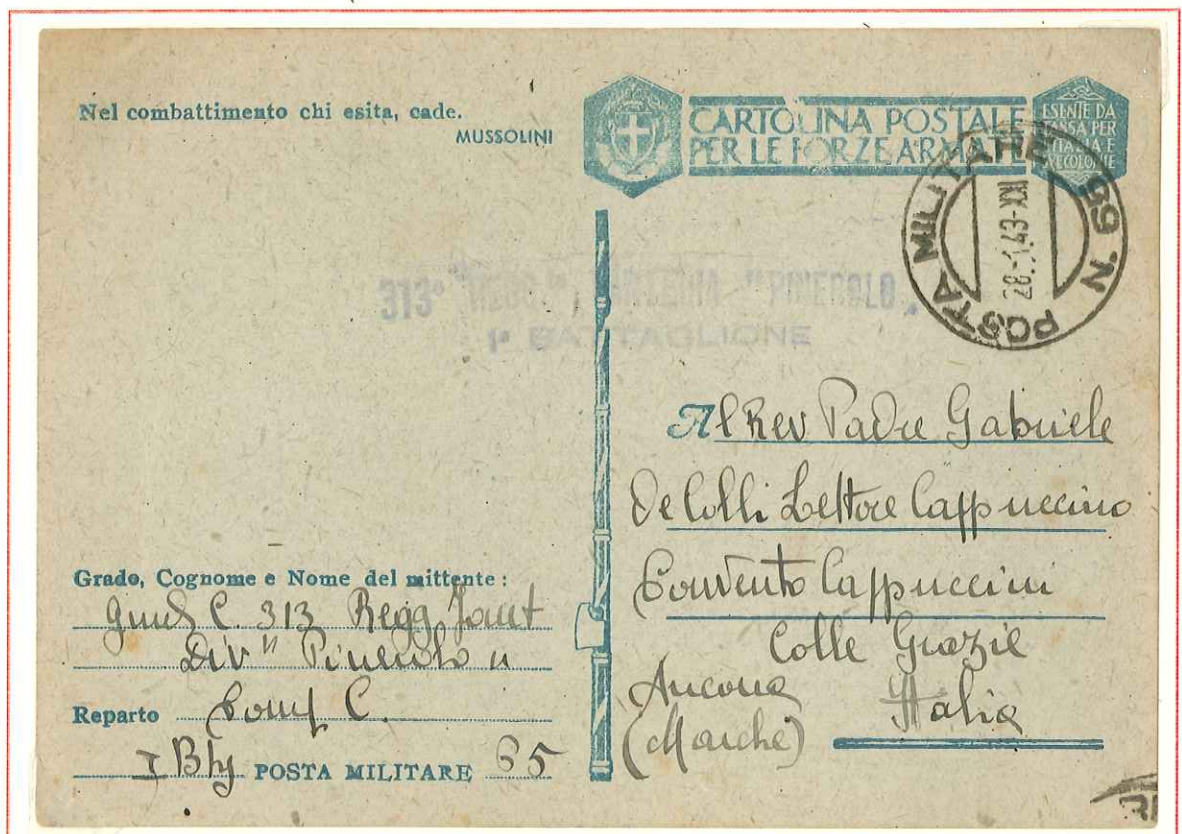 Nel combattimento chi esita, cade.
MUSSOLINI
CARTOLINA POSTALE
PER LE FORZE ARMATE
ESENTE DA
TASSA PER
L'ITALIA E
LE COLONIE
POSTA MILITARE N. 65
28.-1.43-XXI
313° "PINEROLO"
1° BATTAGLIONE
Al Rev Padre Gabriele
De Colli Lettore Cappuccino
Convento Cappuccini
Colle Grazie
Ancona Italia
(Marche)
Grado, Cognome e Nome del mittente:
C. 313 Regg Fant
Div "Pinerolo"
Reparto Comp C.
I Btg POSTA MILITARE 65